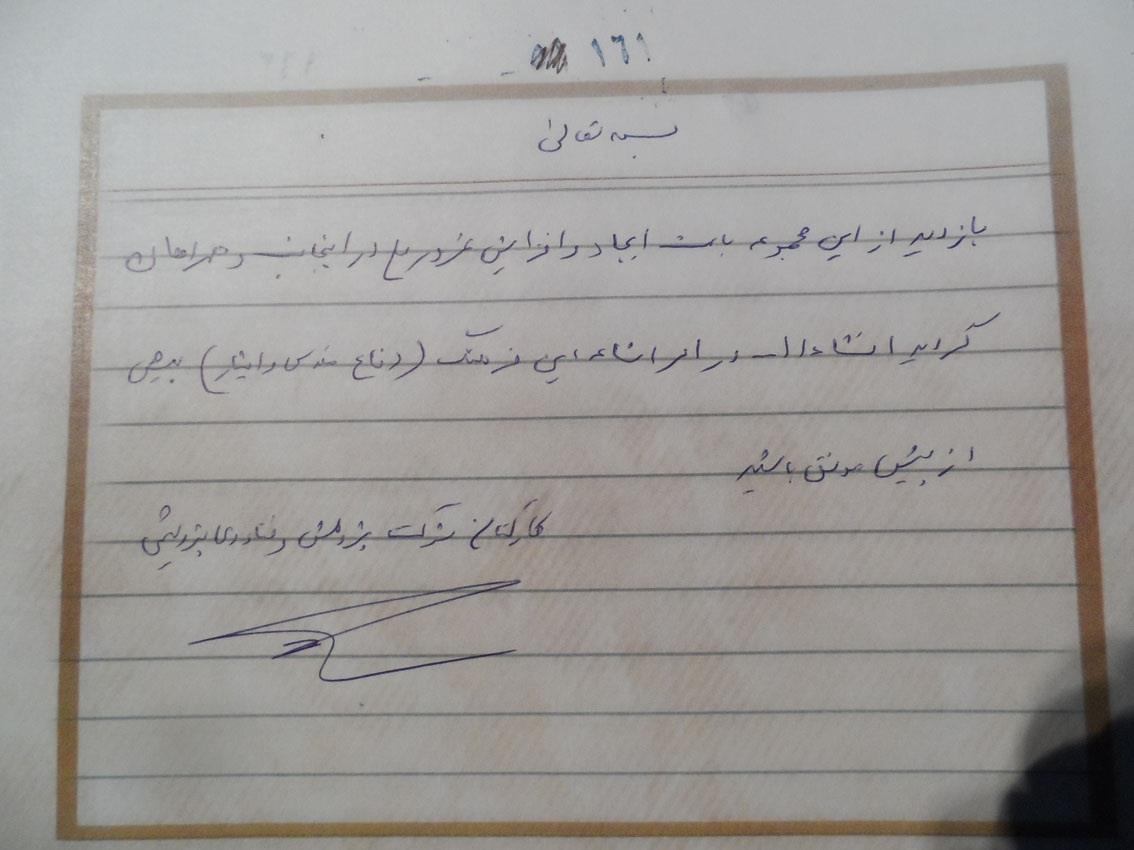 ١٦١
بسمه تعالی
بازدید از این مجموعه باعث ایجاد و افزایش غرور ملی در اینجانب و همراهان
گردید انشاءا... در امر اشاعه این فرهنگ (دفاع مقدس و ایثار) بیش
از پیش موفق باشید
کارکنان شرکت پژوهش و فناوری پتروشیمی